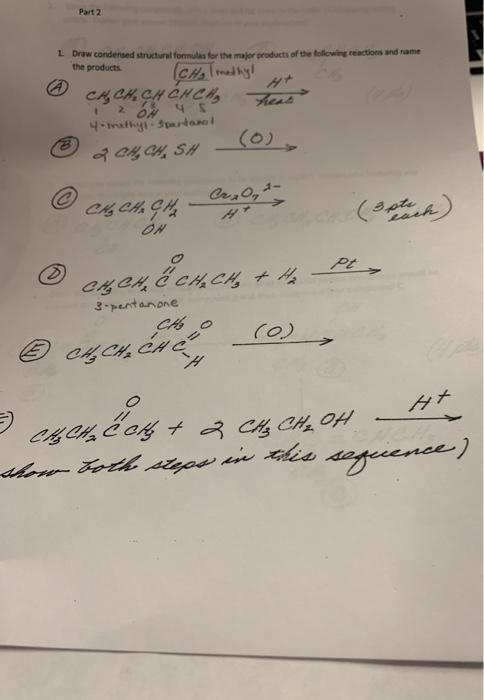 Part 2
1. Draw condensed structural formulas for the major products of the following reactions and name
the products.
CH3 methyl
A CH3CH2CHCHCH3 H+ heat
1 2 3 4 5
OH
4-methyl-3pentanol
B 2 CH3CH2SH (O)
C CH3CH2CH2 Cr2O7 2- H+ (3 pts each)
OH
O
D CH3CH2CCH2CH3 + H2 Pt
3-pentanone
CH3 O
E CH3CH2CHC (O)
H
O
CH3CH2CCH3 + 2 CH3CH2OH H+
show both steps in this sequence)